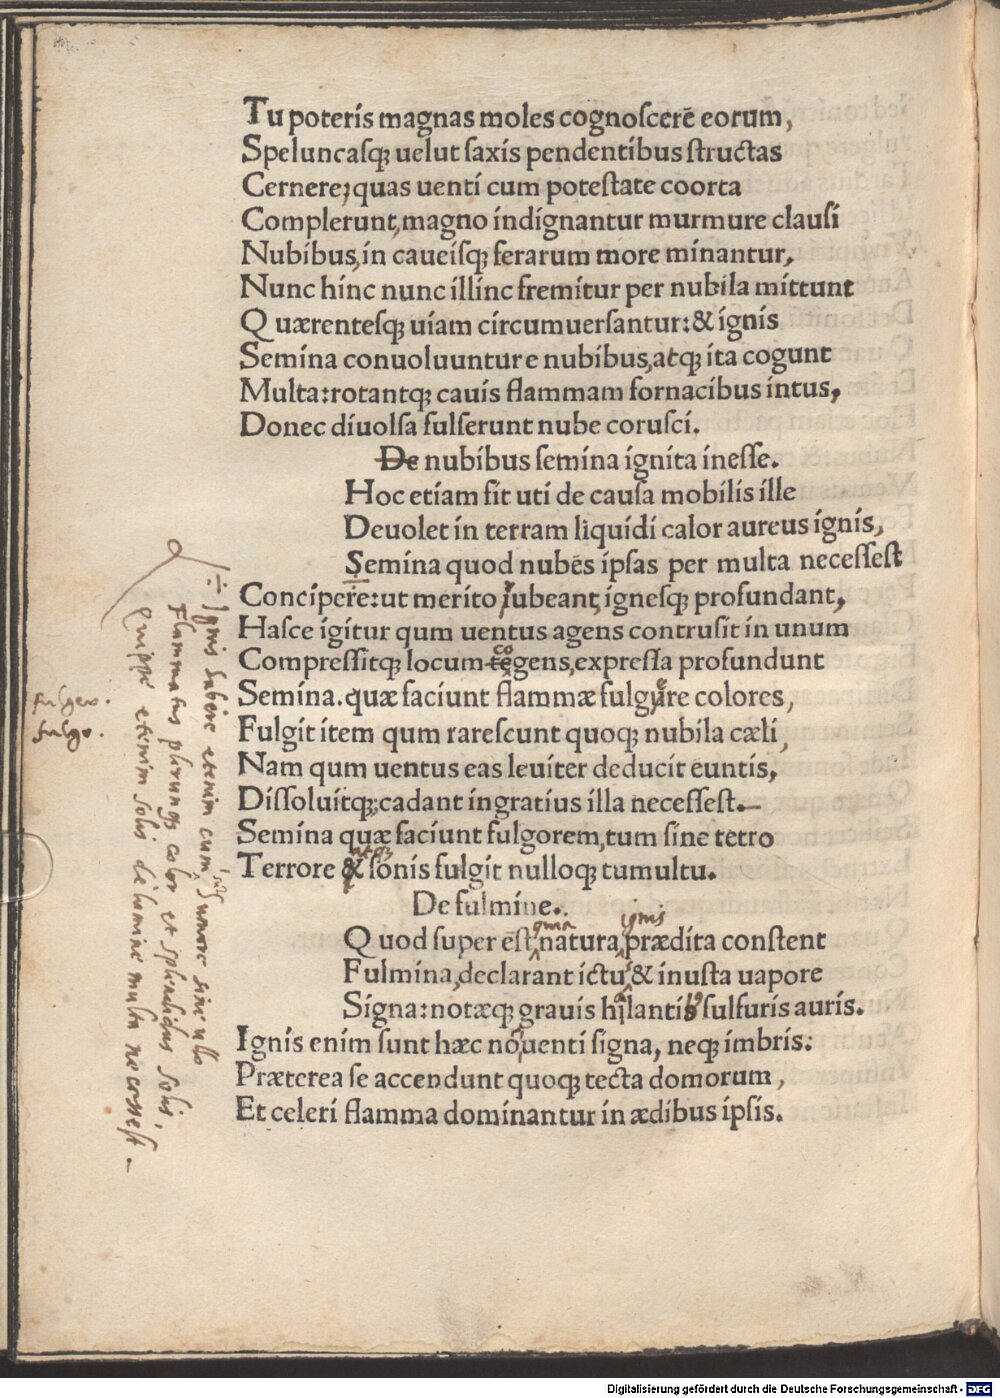 Tu poteris magnas moles cognoſcerē eorum,
Speluncaſq; uelut ſaxis pendentibus ſtructas
Cernere; quas uenti cum poteſtate coorta
Complerunt, magno indignantur murmure clauſi
Nubibus, in caueiſq; ferarum more minantur,
Nunc hinc nunc illinc fremitur per nubila mittunt
Quærenteſq; uiam circumuerſantur: & ignis
Semina conuoluuntur e nubibus, atq; ita cogunt
Multa: rotantq; cauis flammam fornacibus intus,
Donec diuolſa fulſerunt nube coruſci.
De nubibus ſemina ignita ineſſe.
Hoc etiam fit uti de cauſa mobilis ille
Deuolet in terram liquidi calor aureus ignis,
Semina quod nubēs ipſas per multa neceſſeſt
÷ Ignis habere etenim cum ſunt humore ſine ullo
Flammatus plerunq; color et ſplendidus ſolis,
Quippe etenim ſolis de lumine multa neceſſeſt –
Concipere: ut merito iubeant, igneſq; profundant,
Haſce igitur qum uentus agens contruſit in unum
co
Compreſſitq; locum tēgens, expreſſa profundunt
Semina. quæ faciunt flammæ fulgure colores,
fulger.
fulgo.
Fulgit item qum rareſcunt quoq; nubila cæli,
Nam qum uentus eas leuiter deducit euntis,
Diſſoluitq;, cadant ingratius illa neceſſeſt.–
Semina quæ faciunt fulgorem, tum ſine tetro
atq;
Terrore & ſonis fulgit nulloq; tumultu.
De fulmine.
qua ignis
Quod ſuper eſt, natura, prædita conſtent
Fulmina, declarant ictu, & inuſta uapore
Signa: notæq; grauis hilantib ſulfuris auris.
Ignis enim ſunt hæc no, uenti ſigna, neq; imbris:
Præterea ſe accendunt quoq; tecta domorum,
Et celeri flamma dominantur in ædibus ipſis.
Digitalisierung gefördert durch die Deutsche Forschungsgemeinschaft - DFG